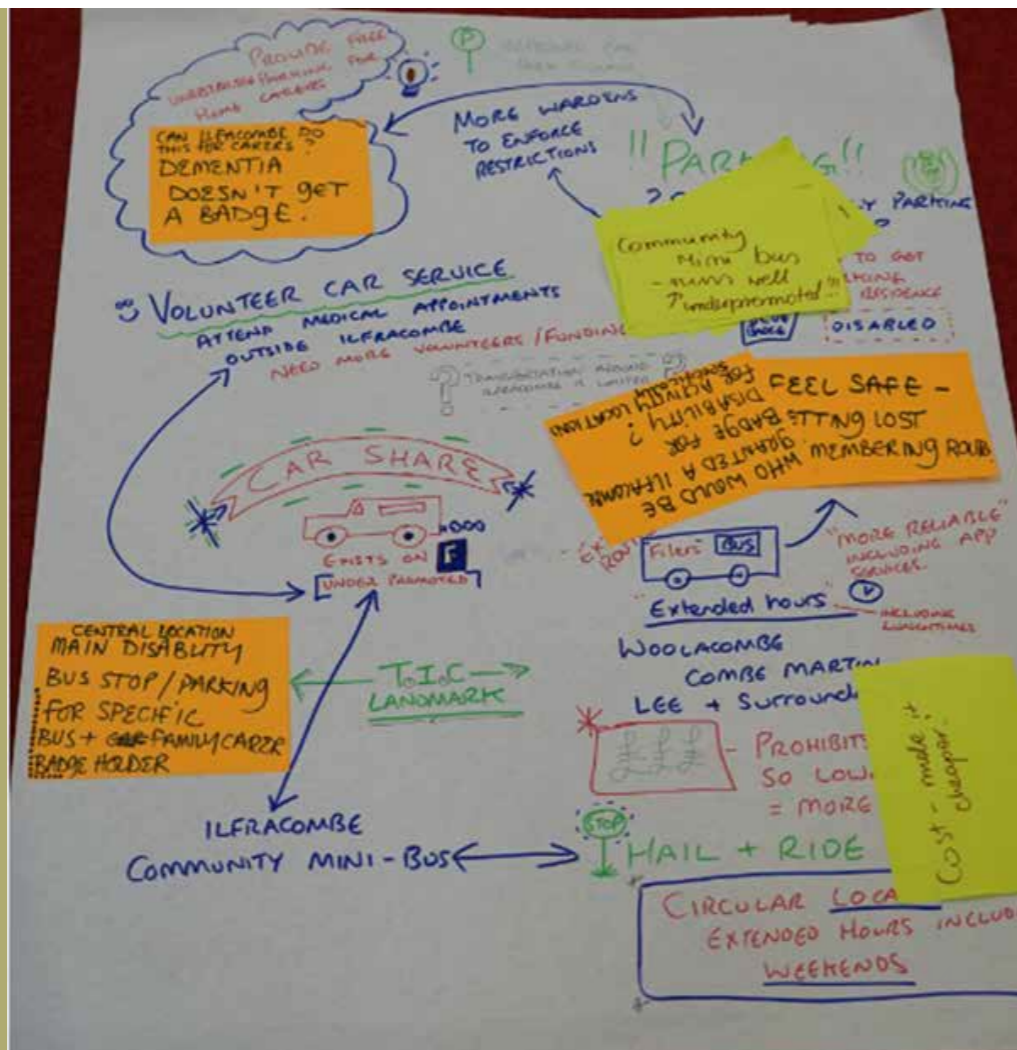 PROVIDE FREE
PARKING FOR
HOME CARERS
CAN ILFRACOMBE DO
THIS FOR CARERS?
DEMENTIA
DOESN'T GET
A BADGE.
P
MORE WARDENS
TO ENFORCE
RESTRICTIONS
!! PARKING!!
PARKING
Community
Mini bus
- runs well
? underpromoted!!!
TO GET
RESIDENCE
DISABLED
VOLUNTEER CAR SERVICE
ATTEND MEDICAL APPOINTMENTS
OUTSIDE ILFRACOMBE
NEED MORE VOLUNTEERS/FUNDING
? TRANSPORTATION AROUND ?
ILFRACOMBE IS LIMITED
FEEL SAFE -
TTING LOST
MEMBERING ROUT
WHO WOULD BE
GRANTED A ILFRACOMBE
BADGE FOR
DISABILITY?
FOR ACTIVITY LOCATIONS
SPECIFICALLY
CAR SHARE
EXISTS ON F
UNDER PROMOTED
"Filers" BUS
"MORE RELIABLE"
INCLUDING APP
SERVICES.
"Extended hours"
INCLUDING
LUNCHTIMES
WOOLACOMBE
COMBE MARTIN
LEE + Surround
CENTRAL LOCATION
MAIN DISABLITY
BUS STOP / PARKING
FOR SPECIFIC
BUS + FAMILY CARER
BADGE HOLDER
T.I.C
LANDMARK
£ £ £
- PROHIBITS
SO LOW
= MORE
Cost - make it
cheaper.
ILFRACOMBE
COMMUNITY MINI-BUS
STOP
HAIL + RIDE
CIRCULAR LOCA
EXTENDED HOURS INCLUD
WEEKENDS